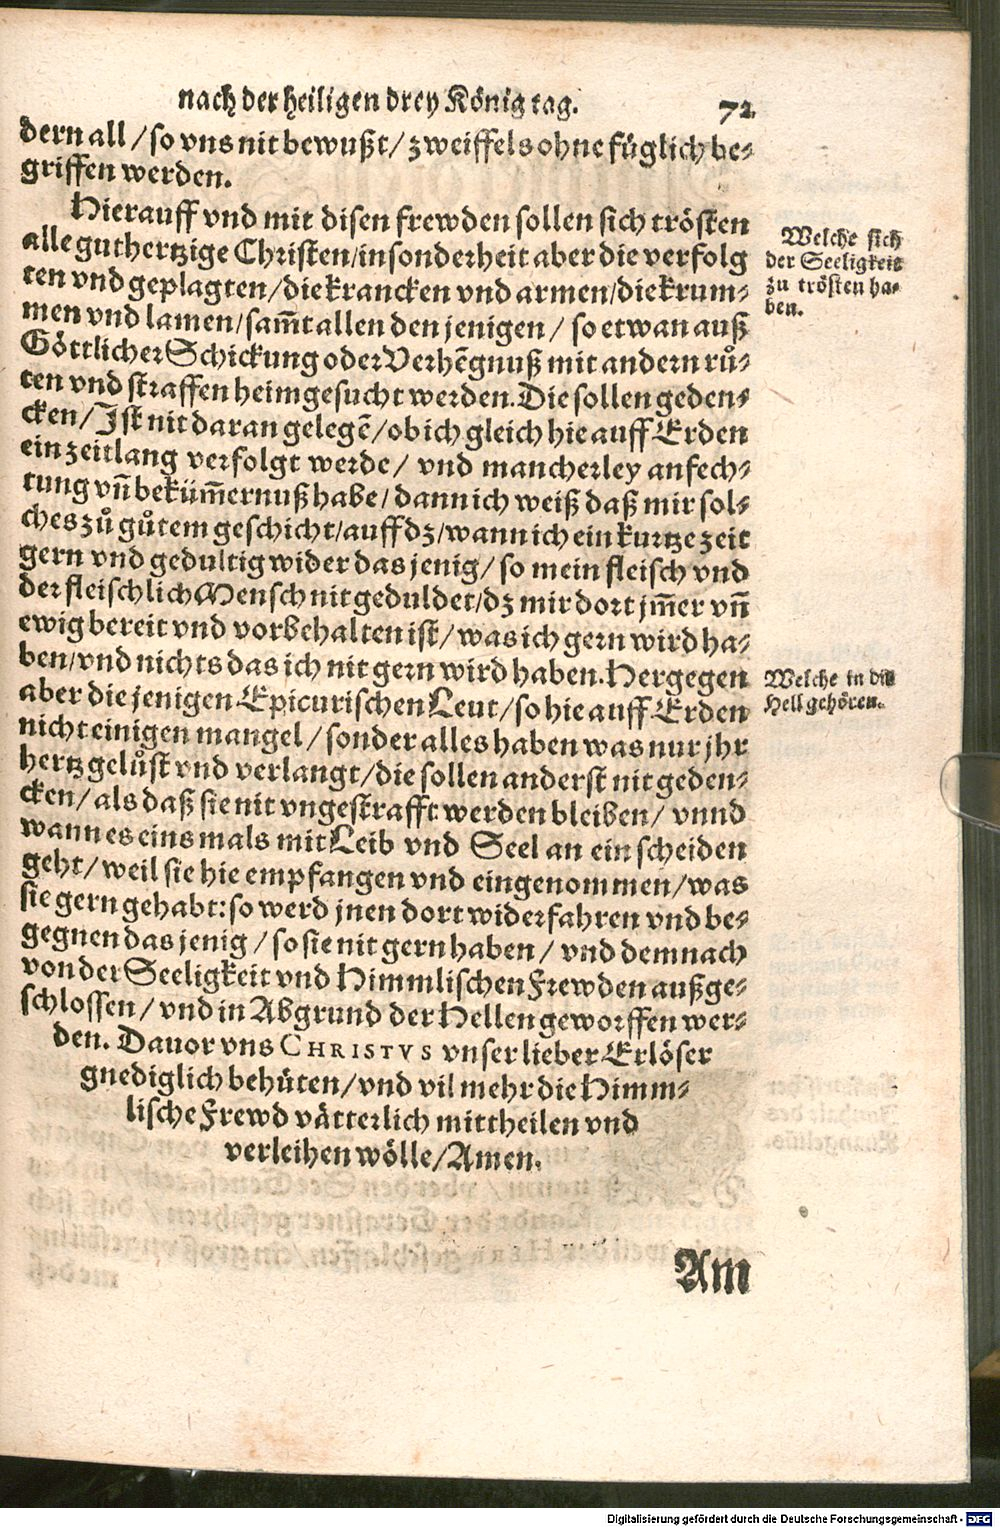 nach der heiligen drey König tag. 72.
dern all / so vns nit bewußt / zweiffels ohne füglich be-
griffen werden.
Hierauff vnd mit disen frewden sollen sich trösten
alle guthertzige Christen / insonderheit aber die verfolg
ten vnd geplagten / die krancken vnd armen / die krum-
men vnd lamen / sam̃t allen den jenigen / so etwan auß
Göttlicher Schickung oder Verhẽgnuß mit andern rů-
ten vnd straffen heimgesucht werden. Die sollen geden-
cken / Ist nit daran gelegẽ / ob ich gleich hie auff Erden
ein zeitlang verfolgt werde / vnd mancherley anfech-
tung vñ bekü̃mernuß habe / dann ich weiß daß mir sol-
ches zů gůtem geschicht / auff dz / wann ich ein kurtze zeit
gern vnd gedultig wider das jenig / so mein fleisch vnd
der fleischlich Mensch nit geduldet / dz mir dort jm̃er vñ
ewig bereit vnd vorbehalten ist / was ich gern wird ha-
ben / vnd nichts das ich nit gern wird haben. Hergegen
aber die jenigen Epicurischen Leut / so hie auff Erden
nicht einigen mangel / sonder alles haben was nur jhr
hertz gelůst vnd verlangt / die sollen anderst nit geden-
cken / als daß sie nit vngestrafft werden bleiben / vnnd
wann es eins mals mit Leib vnd Seel an ein scheiden
geht / weil sie hie empfangen vnd eingenommen / was
sie gern gehabt: so werd jnen dort widerfahren vnd be-
gegnen das jenig / so sie nit gern haben / vnd demnach
von der Seeligkeit vnd Himmlischen Frewden außge-
schlossen / vnd in Abgrund der Hellen geworffen wer-
den. Dauor vns CHRISTVS vnser lieber Erlöser
gnediglich behüten / vnd vil mehr die Himm-
lische Frewd vätterlich mittheilen vnd
verleihen wölle / Amen.
Am
Welche sich
der Seeligkeit
zu trösten ha-
ben.
Welche in die
Hell gehören.
Digitalisierung gefördert durch die Deutsche Forschungsgemeinschaft - DFG